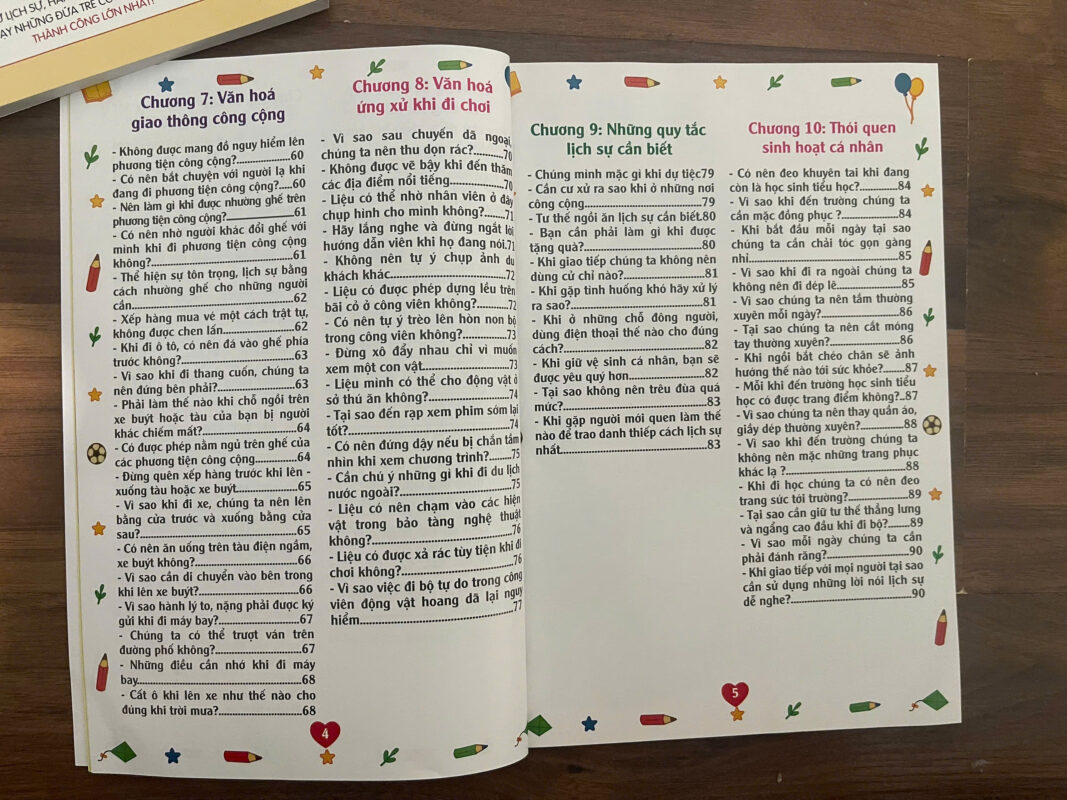 Ử LỊCH SỰ, HÀ
AY NHỮNG ĐỨA TRẺ CÓ
THÀNH CÔNG LỚN NHẤT!
Chương 7: Văn hoá
giao thông công cộng
- Không được mang đồ nguy hiểm lên
phương tiện công cộng?....................60
- Có nên bắt chuyện với người lạ khi
đang đi phương tiện công cộng?....60
- Nên làm gì khi được nhường ghế trên
phương tiện công cộng?....................61
- Có nên nhờ người khác đổi ghế với
mình khi đi phương tiện công cộng
không?....................61
- Thể hiện sự tôn trọng, lịch sự bằng
cách nhường ghế cho những người
cần....................62
- Xếp hàng mua vé một cách trật tự,
không được chen lấn....................62
- Khi đi ô tô, có nên đá vào ghế phía
trước không?....................63
- Vì sao khi đi thang cuốn, chúng ta
nên đứng bên phải?....................63
- Phải làm thế nào khi chỗ ngồi trên
xe buýt hoặc tàu của bạn bị người
khác chiếm mất?....................64
- Có được phép nằm ngủ trên ghế của
các phương tiện công cộng....................64
- Đừng quên xếp hàng trước khi lên -
xuống tàu hoặc xe buýt....................65
- Vì sao khi đi xe, chúng ta nên lên
bằng cửa trước và xuống bằng cửa
sau?....................65
- Có nên ăn uống trên tàu điện ngầm,
xe buýt không?....................66
- Vì sao cần di chuyển vào bên trong
khi lên xe buýt?....................66
- Vì sao hành lý to, nặng phải được ký
gửi khi đi máy bay?....................67
- Chúng ta có thể trượt ván trên
đường phố không?....................67
- Những điều cần nhớ khi đi máy
bay....................68
- Cất ô khi lên xe như thế nào cho
đúng khi trời mưa?....................68
Chương 8: Văn hoá
ứng xử khi đi chơi
- Vì sao sau chuyến dã ngoại,
chúng ta nên thu dọn rác?..........70
- Không được vẽ bậy khi đến thăm
các địa điểm nổi tiếng....................70
- Liệu có thể nhờ nhân viên ở đây
chụp hình cho mình không?.......71
- Hãy lắng nghe và đừng ngắt lời
hướng dẫn viên khi họ đang nói.71
- Không nên tự ý chụp ảnh du
khách khác....................72
- Liệu có được phép dựng lều trên
bãi cỏ ở công viên không?..........72
- Có nên tự ý trèo lên hòn non bộ
trong công viên không?..........73
- Đừng xô đẩy nhau chỉ vì muốn
xem một con vật....................73
- Liệu mình có thể cho động vật ở
sở thú ăn không?....................74
- Tại sao đến rạp xem phim sớm lại
tốt?....................74
- Có nên đứng dậy nếu bị chắn tầm
nhìn khi xem chương trình?.......75
- Cần chú ý những gì khi đi du lịch
nước ngoài?....................75
- Liệu có nên chạm vào các hiện
vật trong bảo tàng nghệ thuật
không?....................76
- Liệu có được xả rác tùy tiện khi đi
chơi không?....................76
- Vì sao việc đi bộ tự do trong công
viên động vật hoang dã lại nguy
hiểm....................77
4
Chương 9: Những quy tắc
lịch sự cần biết
- Chúng mình mặc gì khi dự tiệc79
- Cần cư xử ra sao khi ở những nơi
công cộng....................79
- Tư thế ngồi ăn lịch sự cần biết.80
- Bạn cần phải làm gì khi được
tặng quà?....................80
- Khi giao tiếp chúng ta không nên
dùng cử chỉ nào?....................81
- Khi gặp tình huống khó hãy xử lý
ra sao?....................81
- Khi ở những chỗ đông người,
dùng điện thoại thế nào cho đúng
cách?....................82
- Khi giữ vệ sinh cá nhân, bạn sẽ
được yêu quý hơn....................82
- Tại sao không nên trêu đùa quá
mức?....................83
- Khi gặp người mới quen làm thế
nào để trao danh thiếp cách lịch sự
nhất....................83
Chương 10: Thói quen
sinh hoạt cá nhân
- Có nên đeo khuyên tai khi đang
còn là học sinh tiểu học?..........84
- Vì sao khi đến trường chúng ta
cần mặc đồng phục ?..........84
- Khi bắt đầu mỗi ngày tại sao
chúng ta cần chải tóc gọn gàng
nhỉ....................85
- Vì sao khi đi ra ngoài chúng ta
không nên đi dép lê....................85
- Vì sao chúng ta nên tắm thường
xuyên mỗi ngày?....................86
- Tại sao chúng ta nên cắt móng
tay thường xuyên?....................86
- Khi ngồi bắt chéo chân sẽ ảnh
hưởng thế nào tới sức khỏe?.......87
- Mỗi khi đến trường học sinh tiểu
học có được trang điểm không?..87
- Vì sao chúng ta nên thay quần áo,
giầy dép thường xuyên?..........88
- Vì sao khi đến trường chúng ta
không nên mặc những trang phục
khác lạ ?....................88
- Khi đi học chúng ta có nên đeo
trang sức tới trường?..........89
- Tại sao cần giữ tư thế thẳng lưng
và ngẩng cao đầu khi đi bộ?.......89
- Vì sao mỗi ngày chúng ta cần
phải đánh răng?....................90
- Khi giao tiếp với mọi người tại sao
cần sử dụng những lời nói lịch sự
dễ nghe?....................90
5